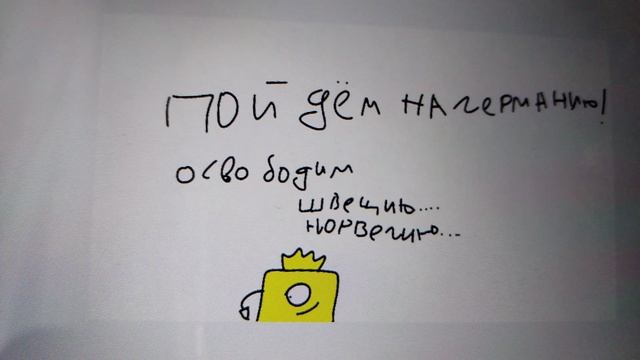 ПОЙДЁМ НА ГЕРМАНИЮ!
освободим
швецию....
норвегию...